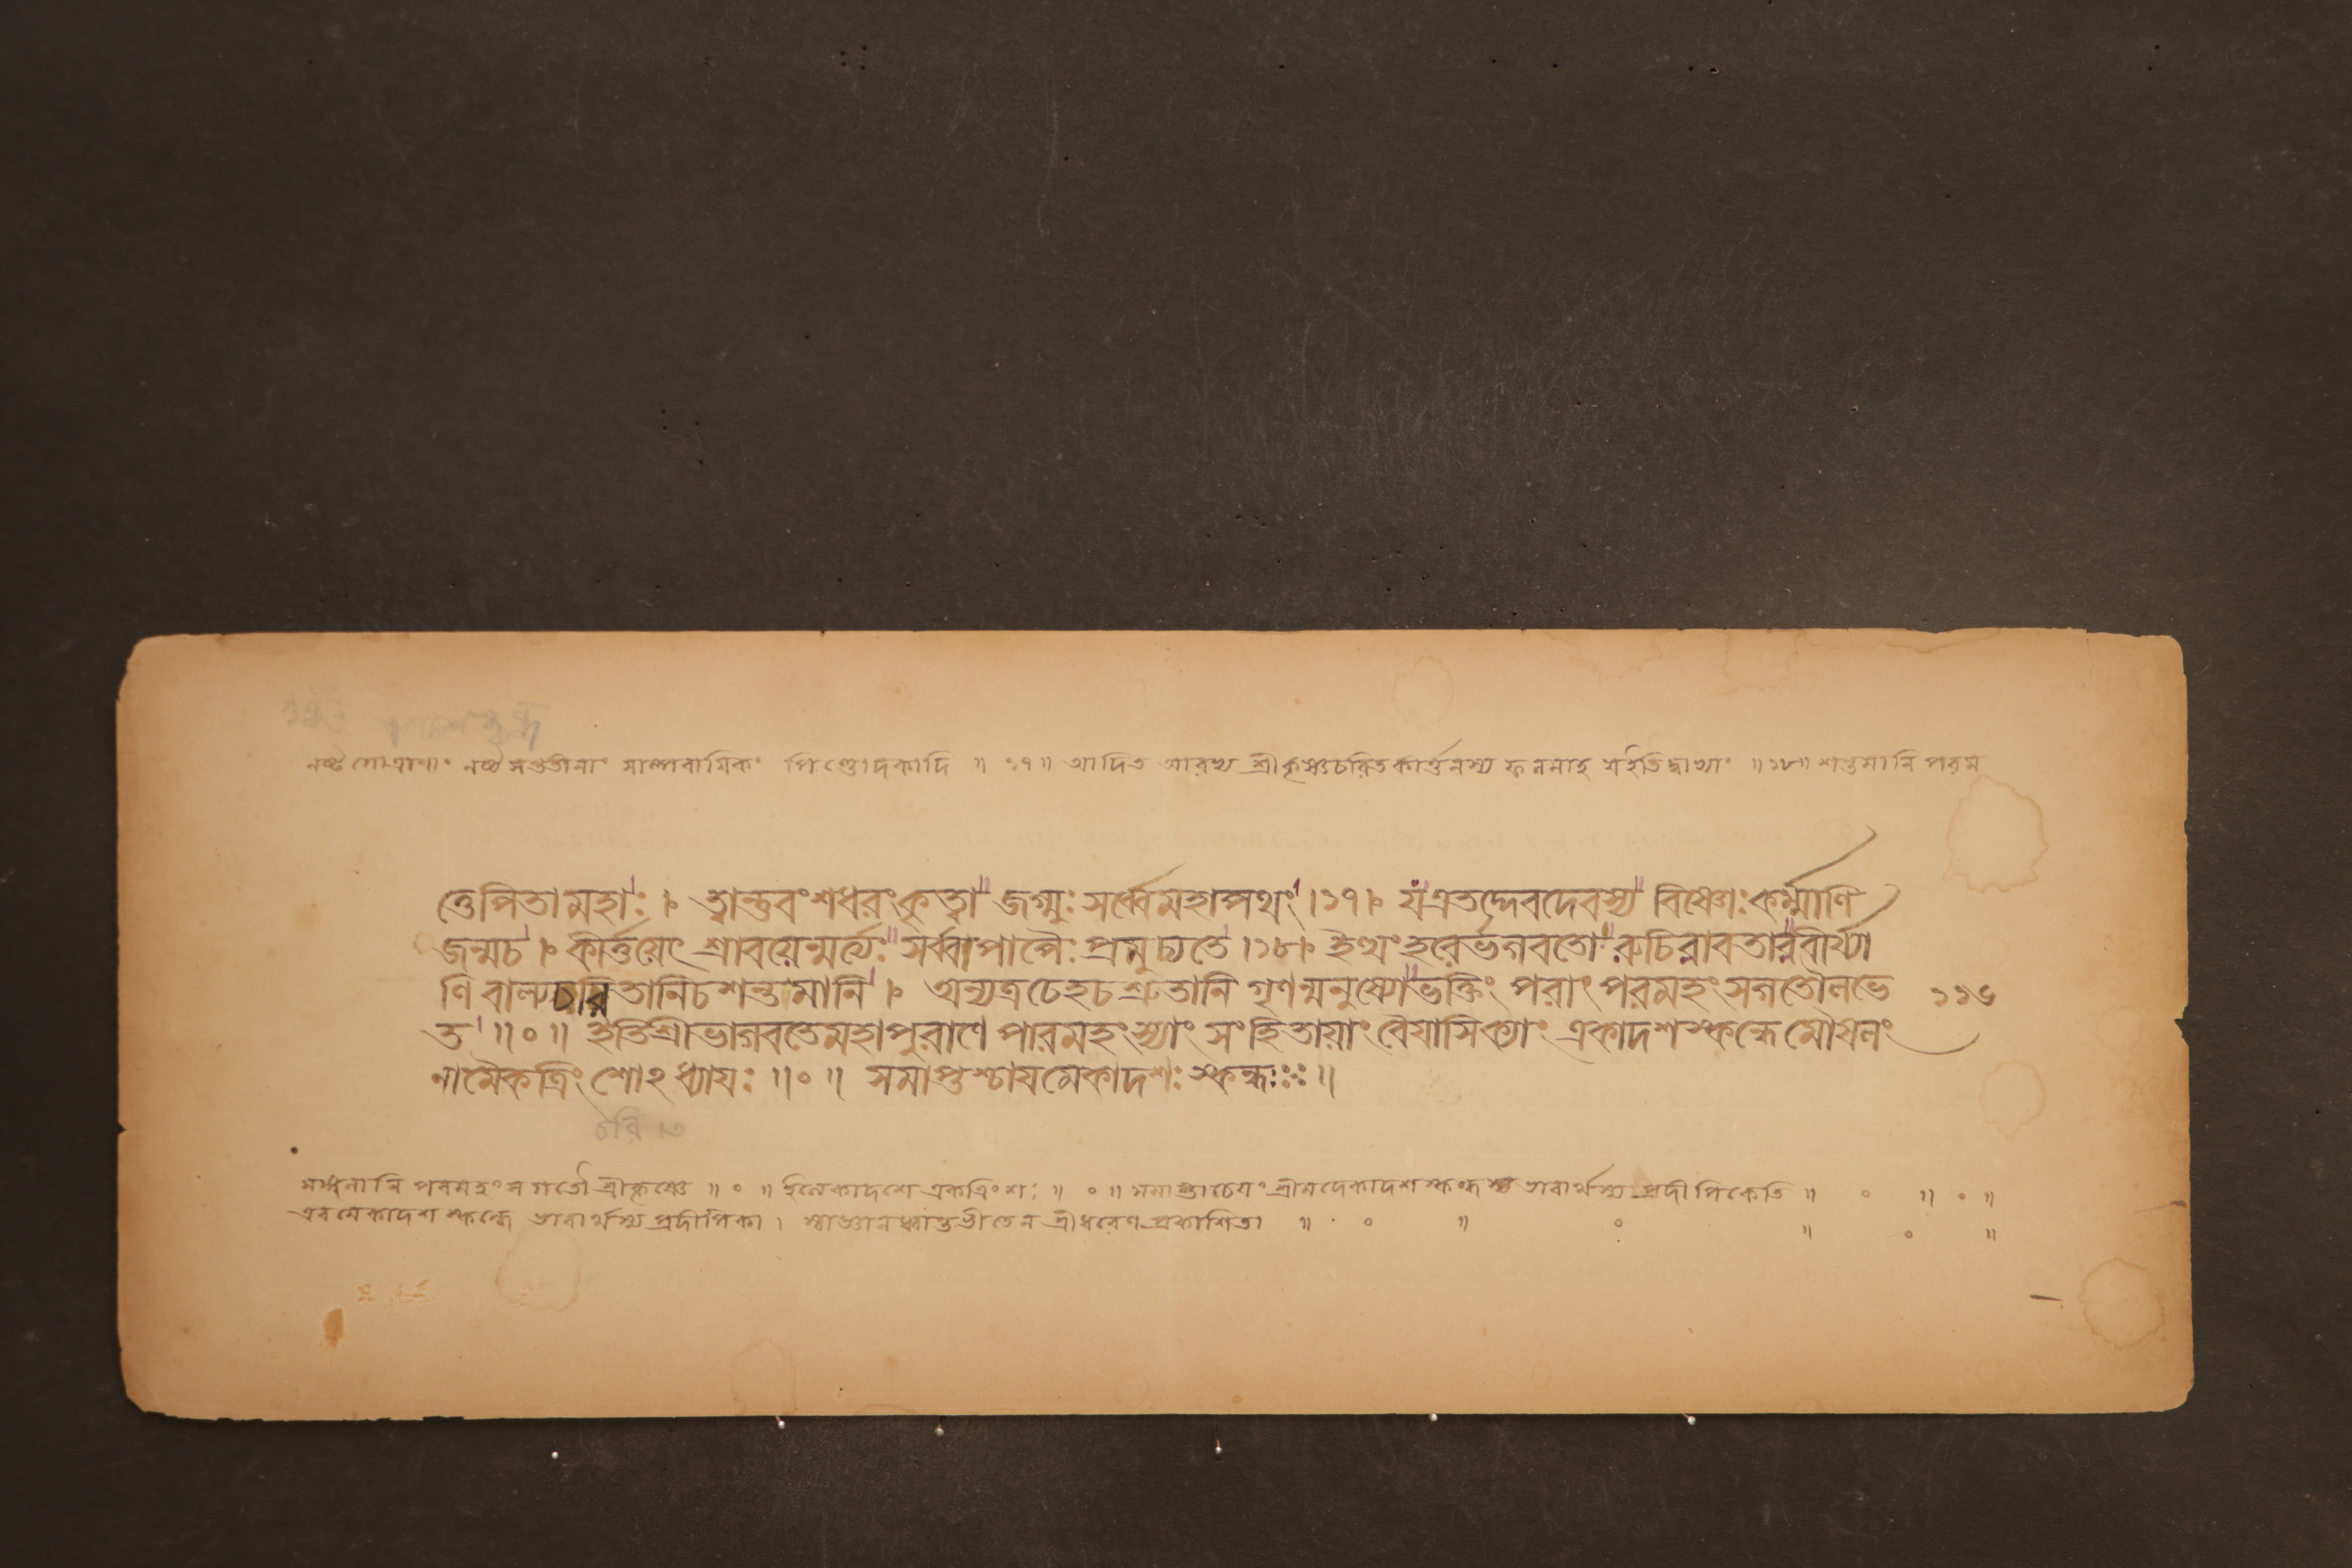 নষ্ট গোত্রাণাং নষ্ট সন্ততীনাং সাম্পরায়িকং পিণ্ডোদকাদি ॥ ১৭ ॥ আদিত আরভ্য শ্রীকৃষ্ণচরিতকীর্ত্তনস্য ফলমাহ যইতিদ্বাভ্যাং ॥ ১৮ ॥ শন্তমানি পরম
ত্তেপিতামহাঃ । ত্বান্তুবংশধরংকৃত্বা জগ্মুঃ সর্ব্বেমহাপথং । ১৭ । যএতদ্দেবদেবস্য বিষ্ণোঃ কর্ম্মাণি
জন্মচ । কীর্ত্তয়েৎ শ্রাবয়েন্মর্ত্যঃ সর্ব্বপাপৈঃ প্রমুচ্যতে । ১৮ । ইত্থং হরের্ভগবতো রুচিরাবতারবীর্য্যা
ণি বাল্যচরিতানিচশন্তমানি । অন্যত্রচেহচশ্রুতানি গৃণন্মনুষ্যোভক্তিং পরাং পরমহংসগতৌলভে ১১৬
ত ॥ ০ ॥ ইতিশ্রীভাগবতেমহাপুরাণে পারমহংস্যাং সংহিতায়াং বৈয়াসিক্যাং একাদশস্কন্ধেমৌষলং
নামৈকত্রিংশোঽধ্যায়ঃ ॥ ০ ॥ সমাপ্তশ্চায়মেকাদশঃ স্কন্ধঃ ॥
চরিত
পরমহংসগতৌ শ্রীকৃষ্ণে ॥ ০ ॥ ইত্যেকাদশে একত্রিংশঃ ॥ ০ ॥ সমাপ্তাচেয়ং শ্রীমদেকাদশস্কন্ধস্য ভাবার্থস্য প্রদীপিকেতি ॥ ০ ॥ ০ ॥
এবমেকাদশস্কন্ধে ভাবার্থস্য প্রদীপিকা । স্বাজ্ঞানধ্বান্তভীতেন শ্রীধরেণ প্রকাশিতা ॥ ০ ॥ ০ ॥ ০ ॥